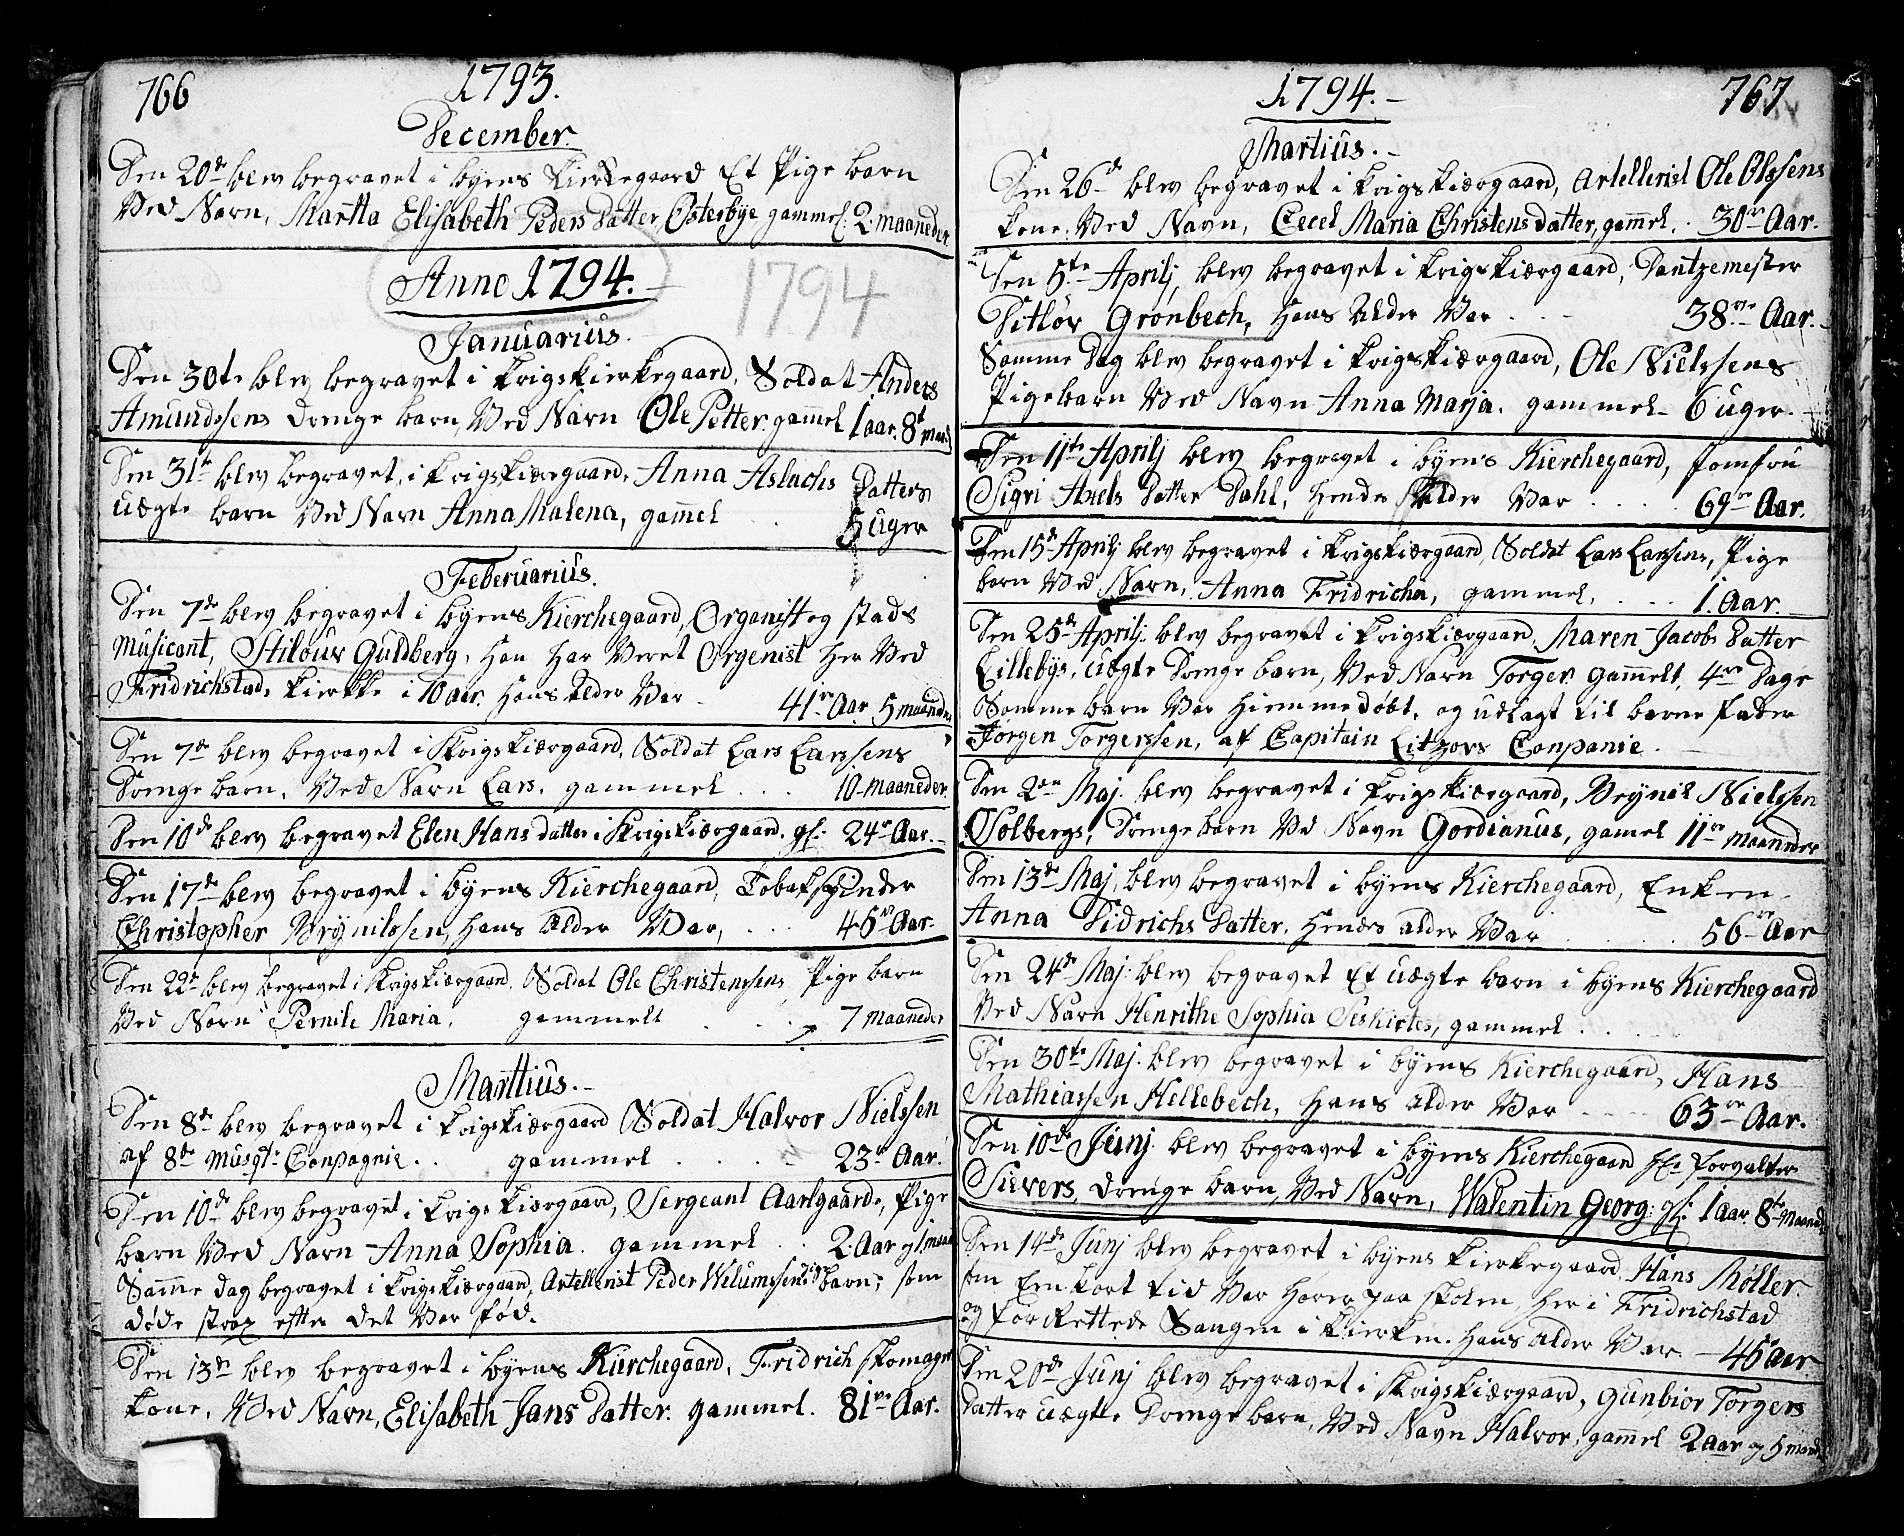 766
1793.
December.
Den 20de blev begravet i byens Kierkegaard Et Pige barn
Ved Navn, Martta Elisabeth Peders Datter Østerbye gammel. 2 maaneder
Anno 1794.
1794
Januarius.
Den 30te blev begravet i krigskierkegaard, Soldat Anders
Amundssens Drenge barn, Ved Navn Ole Petter. gammel 1 aar. 8t maand
Den 31te blev begravet, i krigskiærgaard, Anna Aslachs Datters
uægte barn Ved Navn Anna Malena, gammel . . 5 uger
Februarius.
Den 7de blev begravet i byens Kierchegaard, Organist og stads
Musicant, Guldberg, Han Har Veret Orgenist Her Ved
Fridrichstads Kierke i 10 aar. Hans alder Var . 41re Aar 5 maander
Den 7de blev begravet i krigskiærgaard, Soldat Lars Larssens
Drenge barn, Ved Navn Lars, gammel . . . 10 maaneder.
Den 10de blev begravet Elen Hans datter i krigskiærgaard. gl: 24re Aar.
Den 17de blev begravet i byens Kierchegaard, Tobakspinder
Christopher Brynilssen, Hans alder Var, . . . 45re Aar.
Den 22de blev begravet i krigskiærgaard, Soldat Ole Christenssens Pige barn
Ved Navn Pernile Maria, gammelt . . . 7 maaneder
Marttius.
Den 8de blev begravet i krigskiærgaard Soldat Halvor Nielssen
af 8de Musqte Conpagnie . . gammel . . . . 23re Aar.
Den 10de blev begravet i krigskiærgaard, Sergeant Aarlgaards, Pige
barn Ved Navn Anna Sophia. gammel . . 2 Aar og 1 maan
Samme dag begravet i krigskiærgaard, Artellerist Peder Welumssens Pige barn, som
døde strax efter det Var fød.
Den 13de blev begravet i byens Kierchegaard, Fridrich skomager
kone, Ved Navn, Elisabeth Jans Datter. gammel. 81re Aar.
1794.
767
Martius.
Den 26de blev begravet i krigskiærgaard, Artellerist Ole Olssens
kone, Ved Navn, Cecel Maria Christensdatter, gammel. . 30re Aar.
Den 5te Aprilj, blev begravet i krigskiærgaard, Dantzemester
Ditløv Grønbech, Hans alder Var . . . 38re Aar.
Samme Dag blev begravet i krigskiærgaard, Ole Nielssens
Pigebarn Ved Navn Anna Marja. gammel 6 uger.
Den 11te Aprilj blev begravet i byens Kierchegaard, Jomfru
Sigri Axels Datter Dahl, Hendes Alder Var . . . . 67re Aar.
Den 15de Aprilj blev begravet i krigskiærgaard, Soldat Lars Larssens, Pige
barn Ved Navn, Anna Fridricha, gammel, . . . . 1. Aar.
Den 25de Aprilj blev begravet i krigskiærgaard, Maren Jacobs Datter
Lillebys, uægte Drenge barn, Ved Navn Torger gammelt, 4re Dage
Samme barn Var Hiemmedøbt, og udlagt til barne fader
Jørgen Torgerssen, af Capitain Litzovs Conpanie.
Den 2den Maj. blev begravet i krigskiærgaard, Brynil Nielssen
Solbergs, Drenge barn Ved Navn Gordianus, gamel 11re maander
Den 13de Maj, blev begravet i byens Kierchegaard, Enken
Anna Didrichs Datter, Hendes alder Var . . . . . 56re Aar
Den 24de Maj: blev begravet Et uægte barn i byens Kierchegaard
Ved Navn Henrithe Sophia, gammel . . .
Den 30te Maj: blev begravet i byens Kierchegaard, Hans
Mathiassen Hellebech, Hans alder Var . . . 63re Aar.
Den 10de Junj blev begravet i byens Kierchegaard Hr: forvalter
Sievers Drenge barn, Ved Navn, Walentin Georg: gl: 1 aar. 8te Maand
Den 14de Junj blev begravet i byens Kierkegaard, Hans Møller.
som Een kort tid Var Hører paa skolen, Her i Fridrichstad
og forrettede Sangen i Kierken. Hans alder Var 45 aar
Den 20de Junj blev begravet i krigskiærgaard, Gunbior Torgers
Datter uægte Drenge barn, Ved Navn Halvor, gammel 2 aar og 5 maand